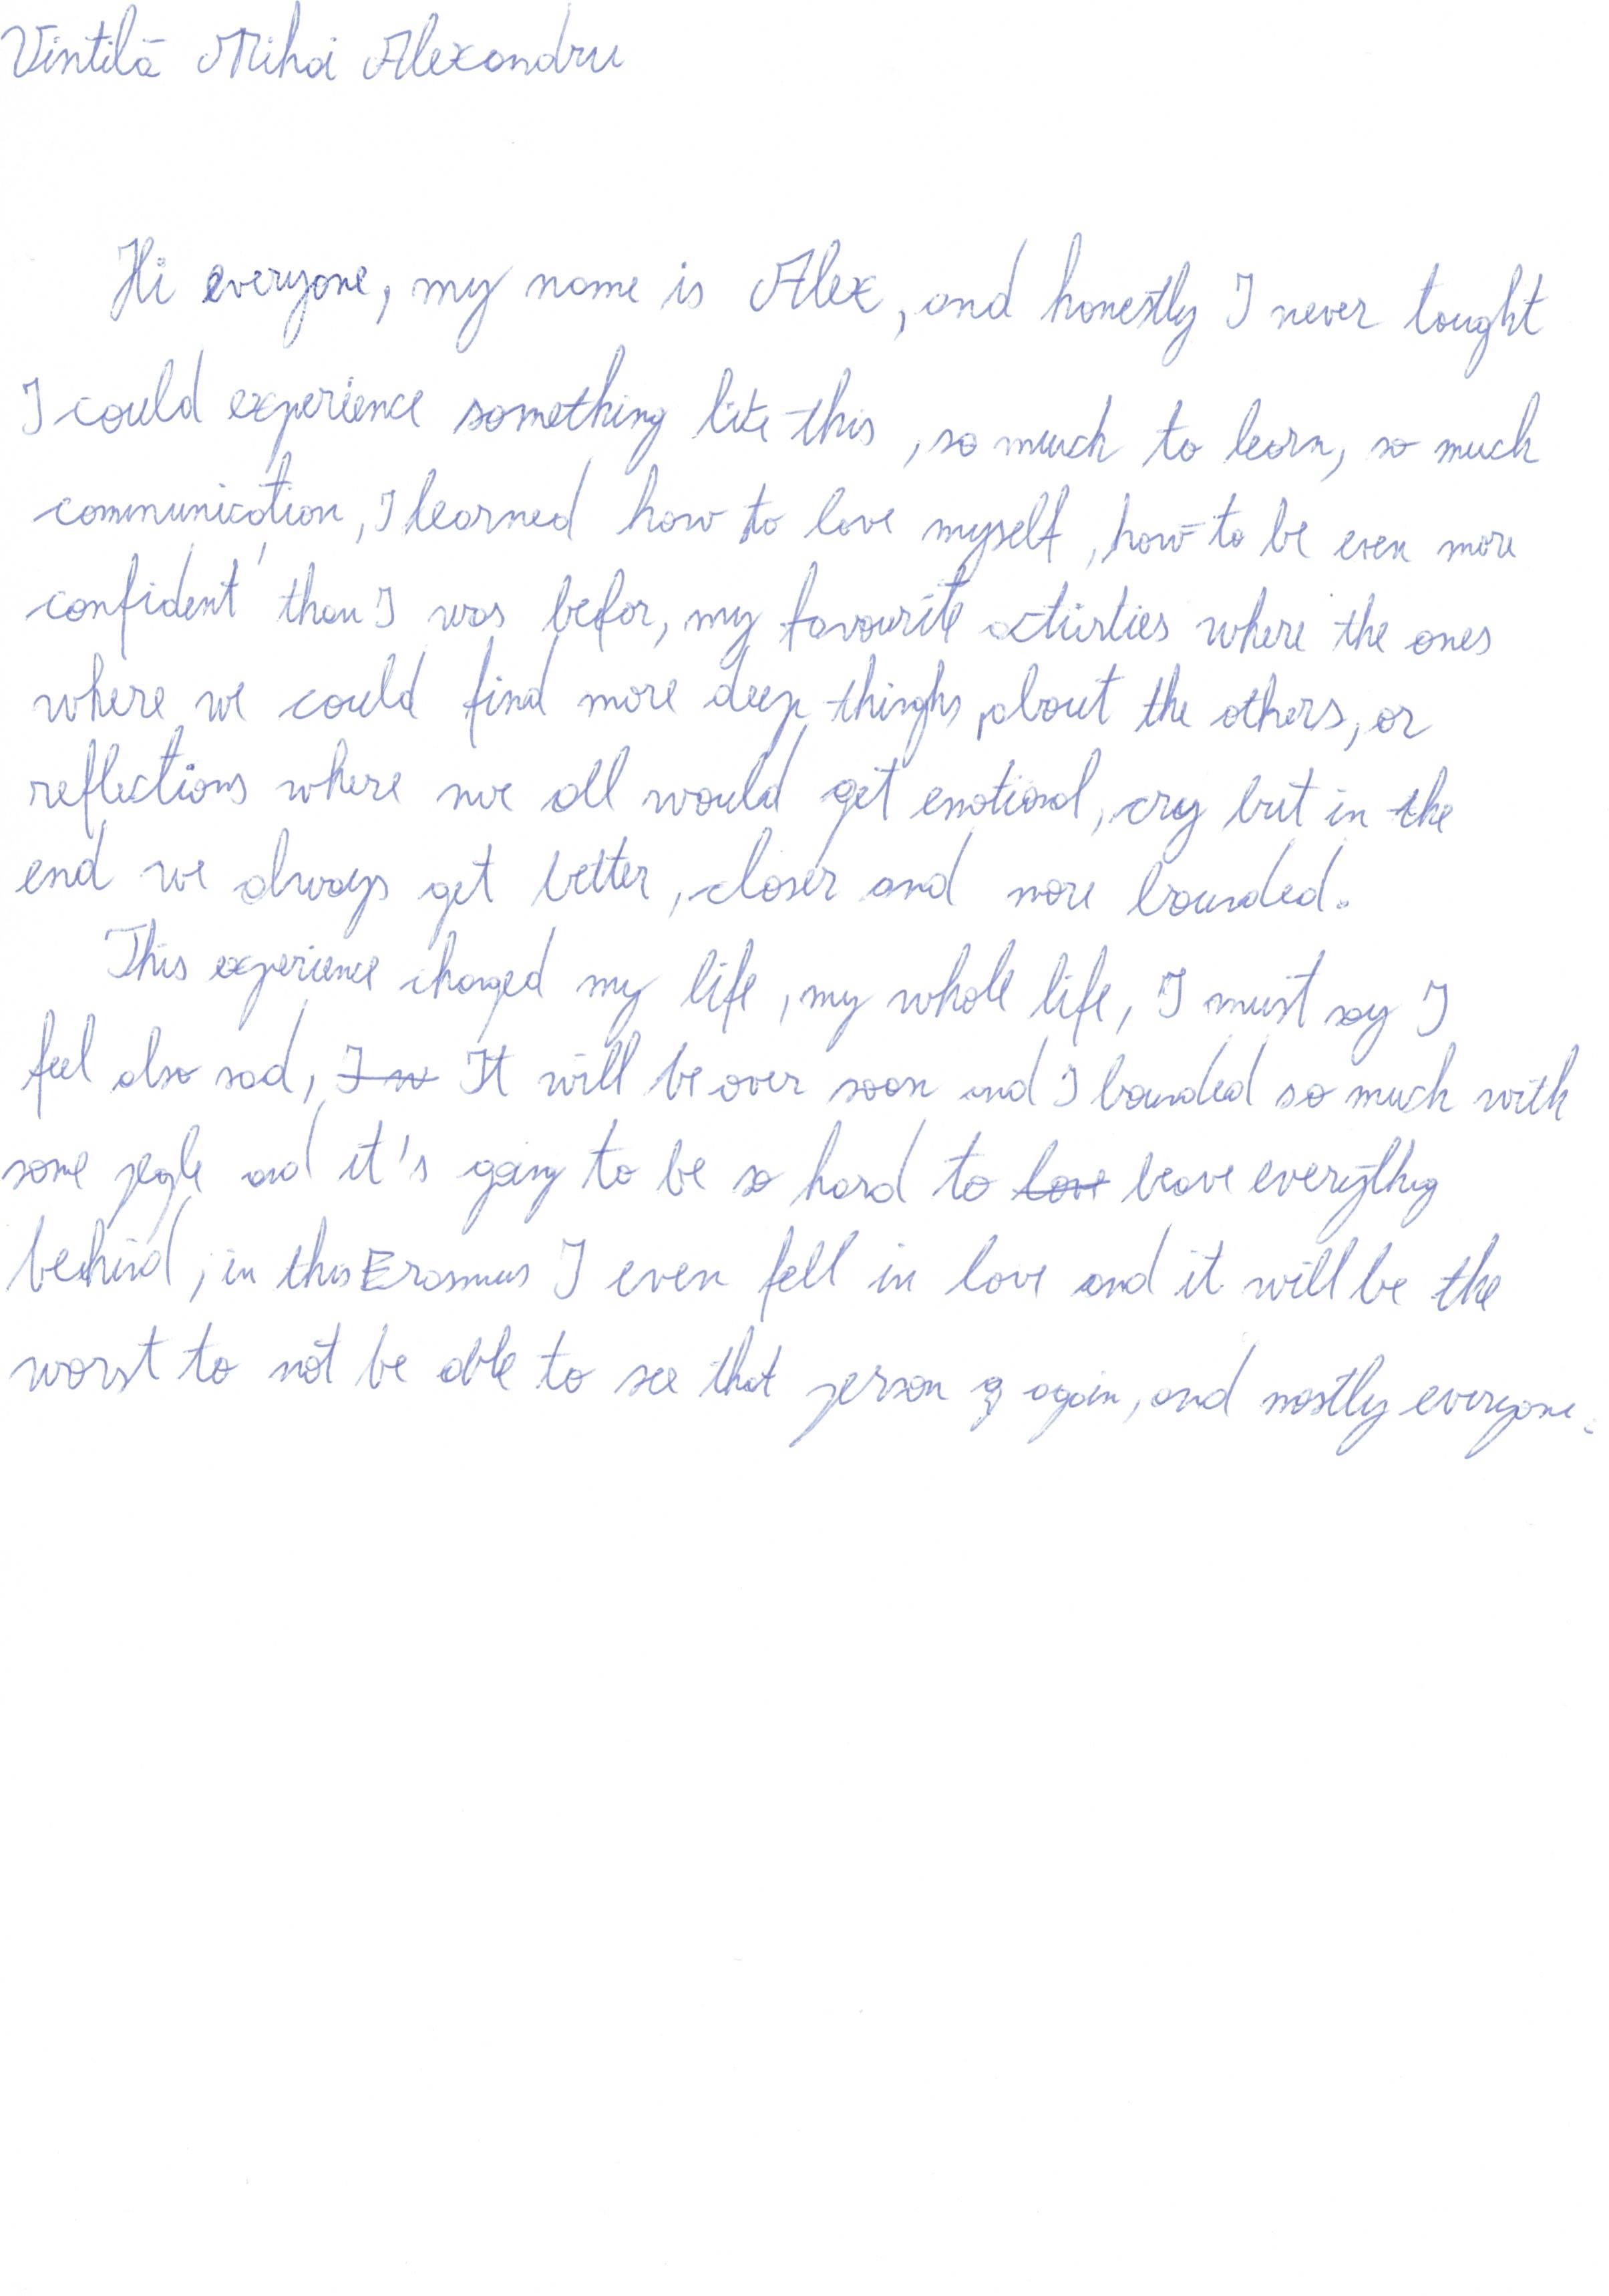 Vintilă Mihai Alexandru
Hi everyone, my name is Alex, and honestly I never tought
I could experience something like this, so much to learn, so much
communication, I learned how to love myself, how to be even more
confident than I was befor, my favourite activities where the ones
where we could find more deep thinghs about the others, or
reflections where we all would get emotional, cry but in the
end we always get better, closer and more bounded.
This experience changed my life, my whole life, I must say I
feel also sad, It will be over soon and I bounded so much with
some people and it's going to be so hard to leave everything
behind, in this Erasmus I even fell in love and it will be the
worst to not be able to see that person again, and mostly everyone.